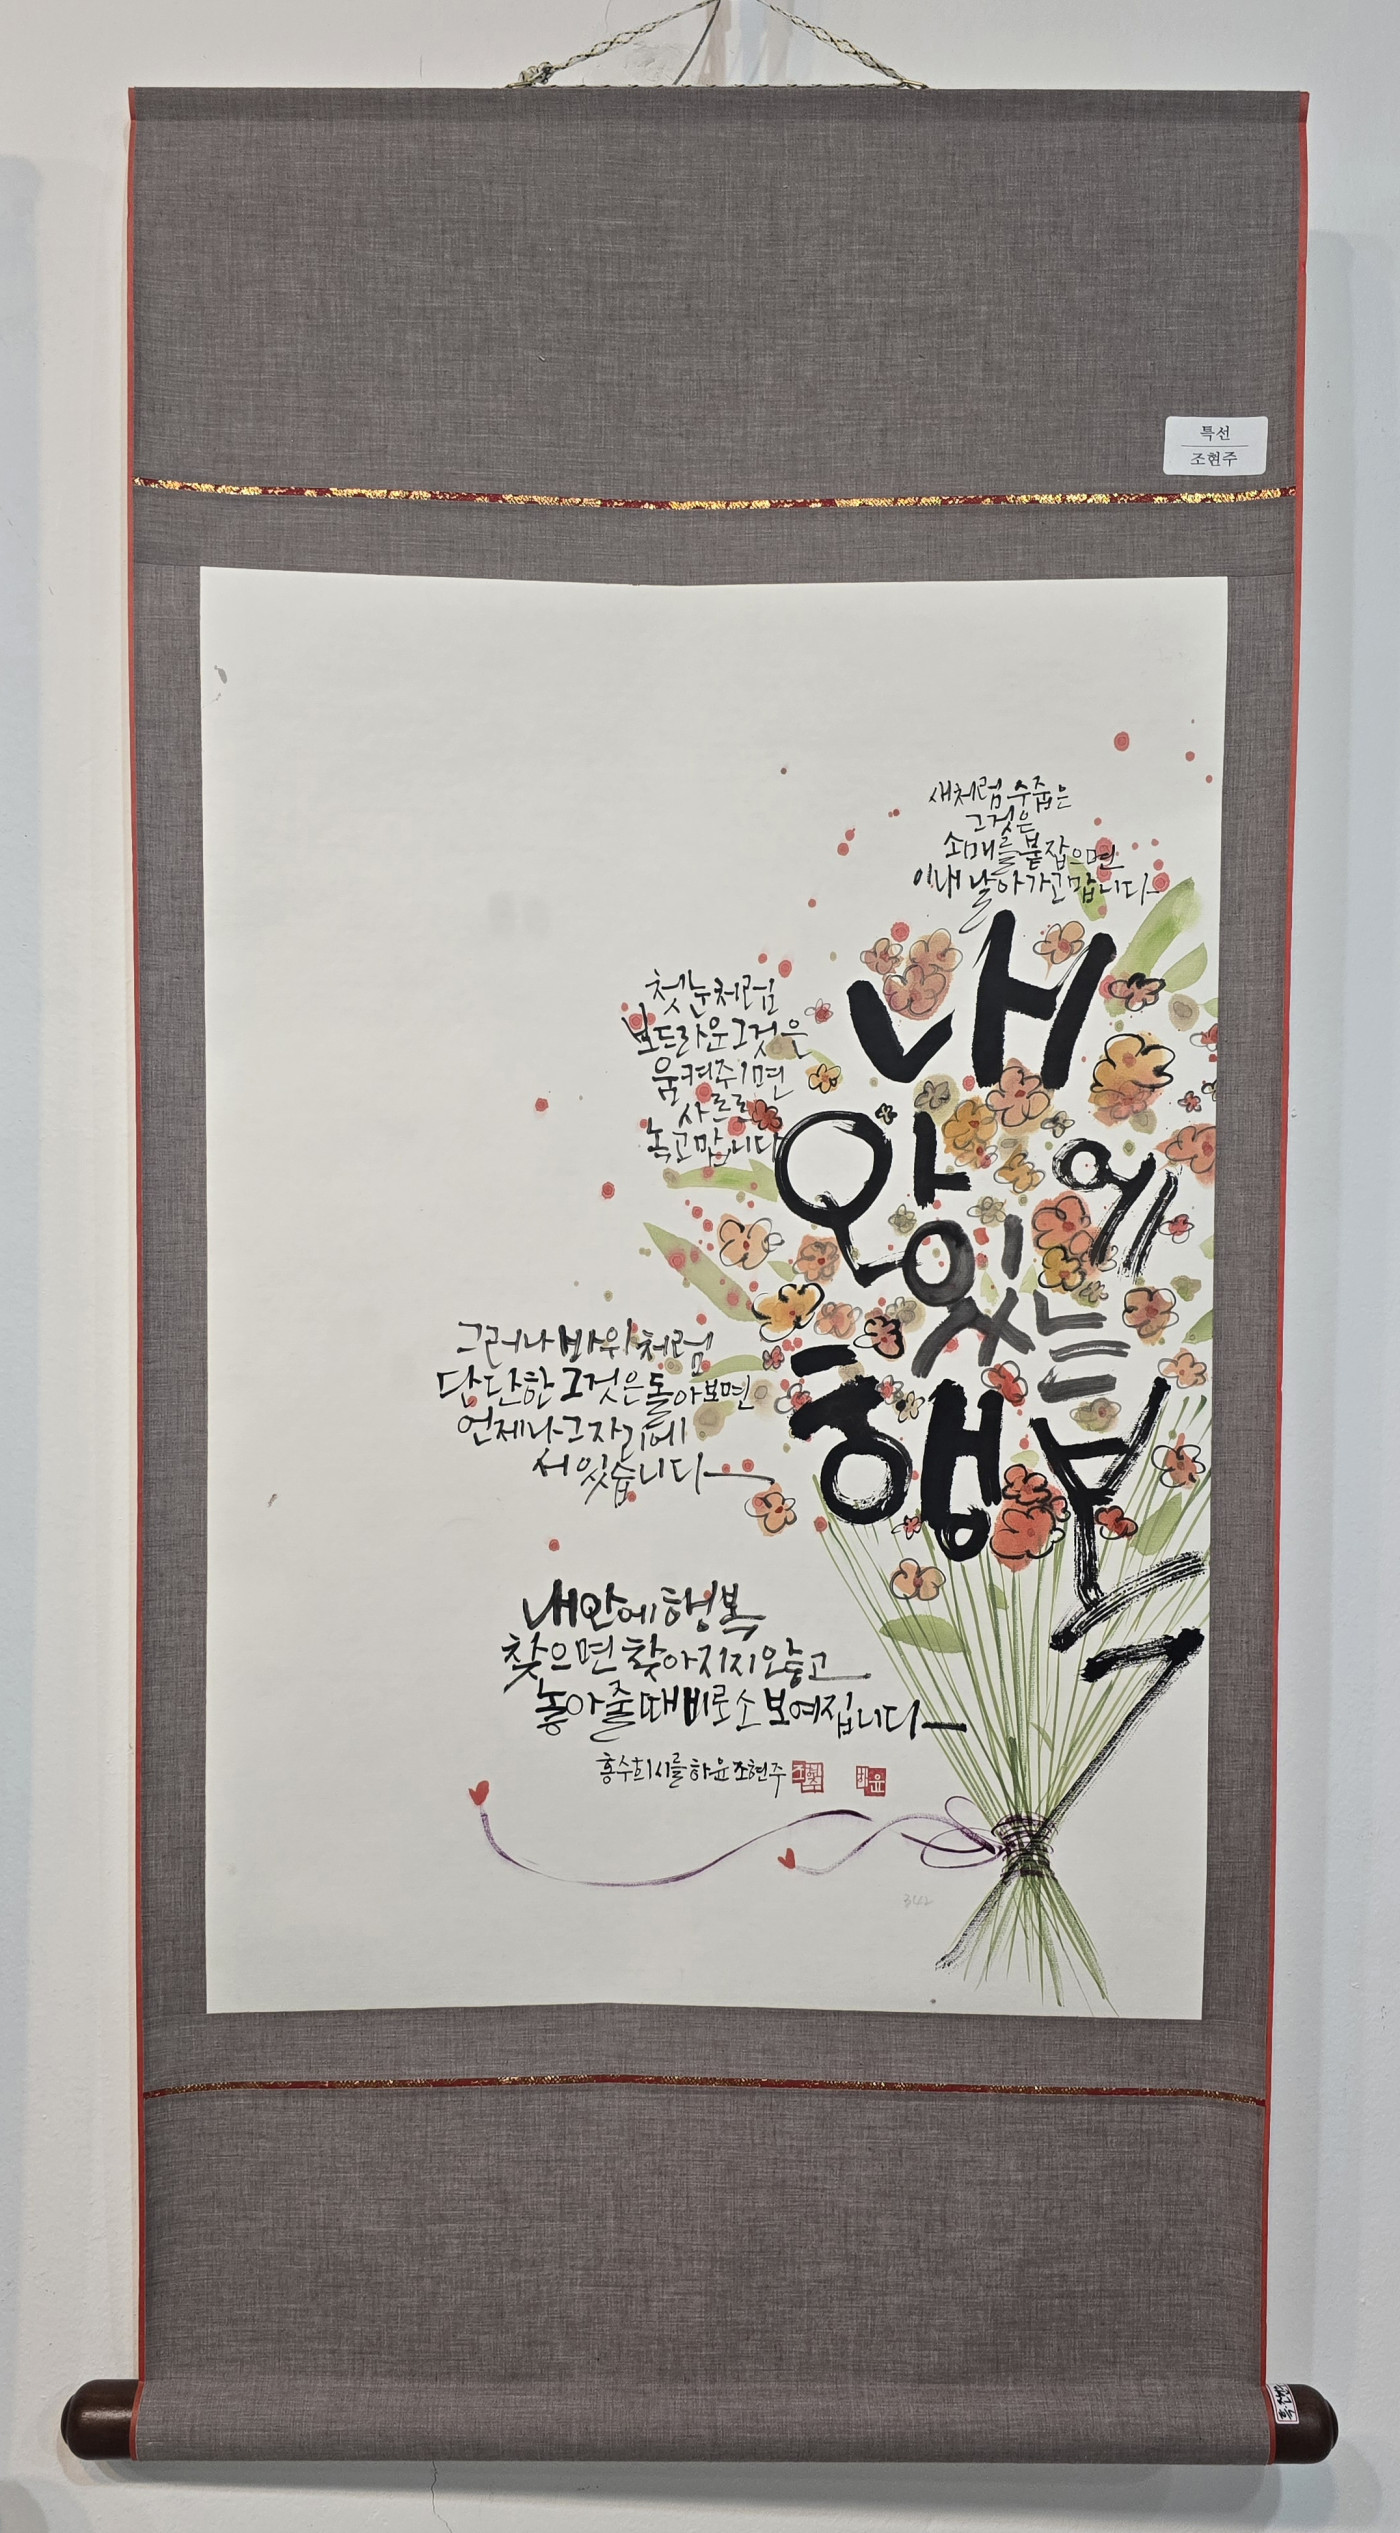 특선
조현주
새처럼 수줍은
그것은
소매를 붙잡으면
이내 날아가고 맙니다
내
안에
있는
행복
첫눈처럼
보드라운 그것은
움켜주이면
사르르
녹고 맙니다
그러나 바위처럼
단단한 그것은 돌아보면
언제나 그 자리에
서 있습니다
내 안에 행복
찾으면 찾아지지 않고
놓아줄 때 비로소 보여집니다
홍수희 시를 하윤 조현주
하윤